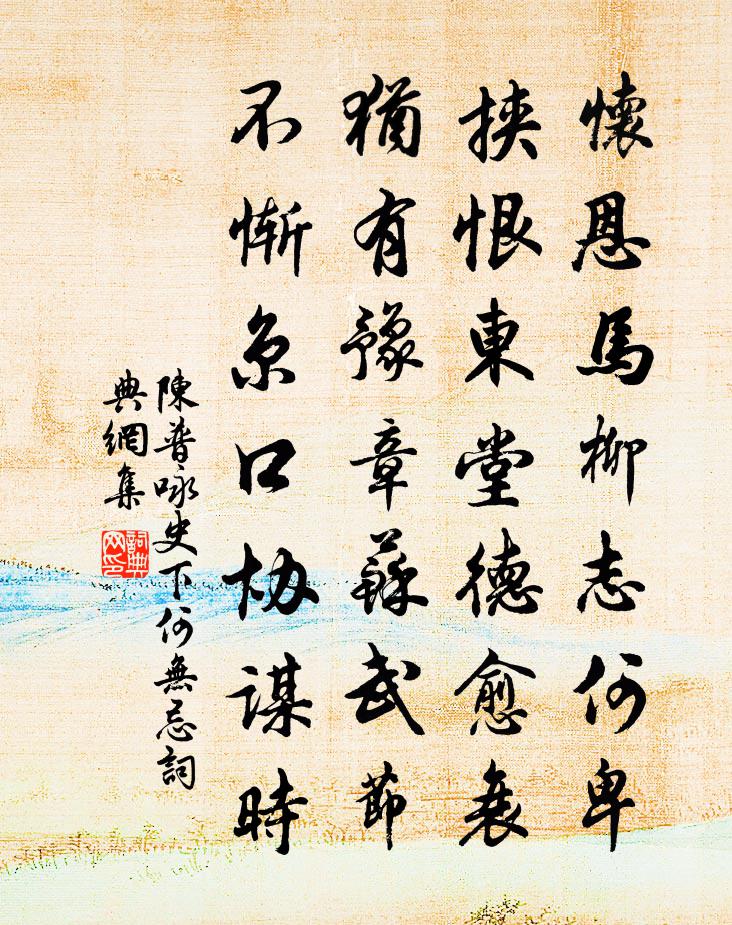 懷恩馬柳志何卑
挾恨東堂德愈衰
猶有豫章蘇武節
不慚京口協謀時
陳普咏史下何無忌詞
典網集
詞典
网印